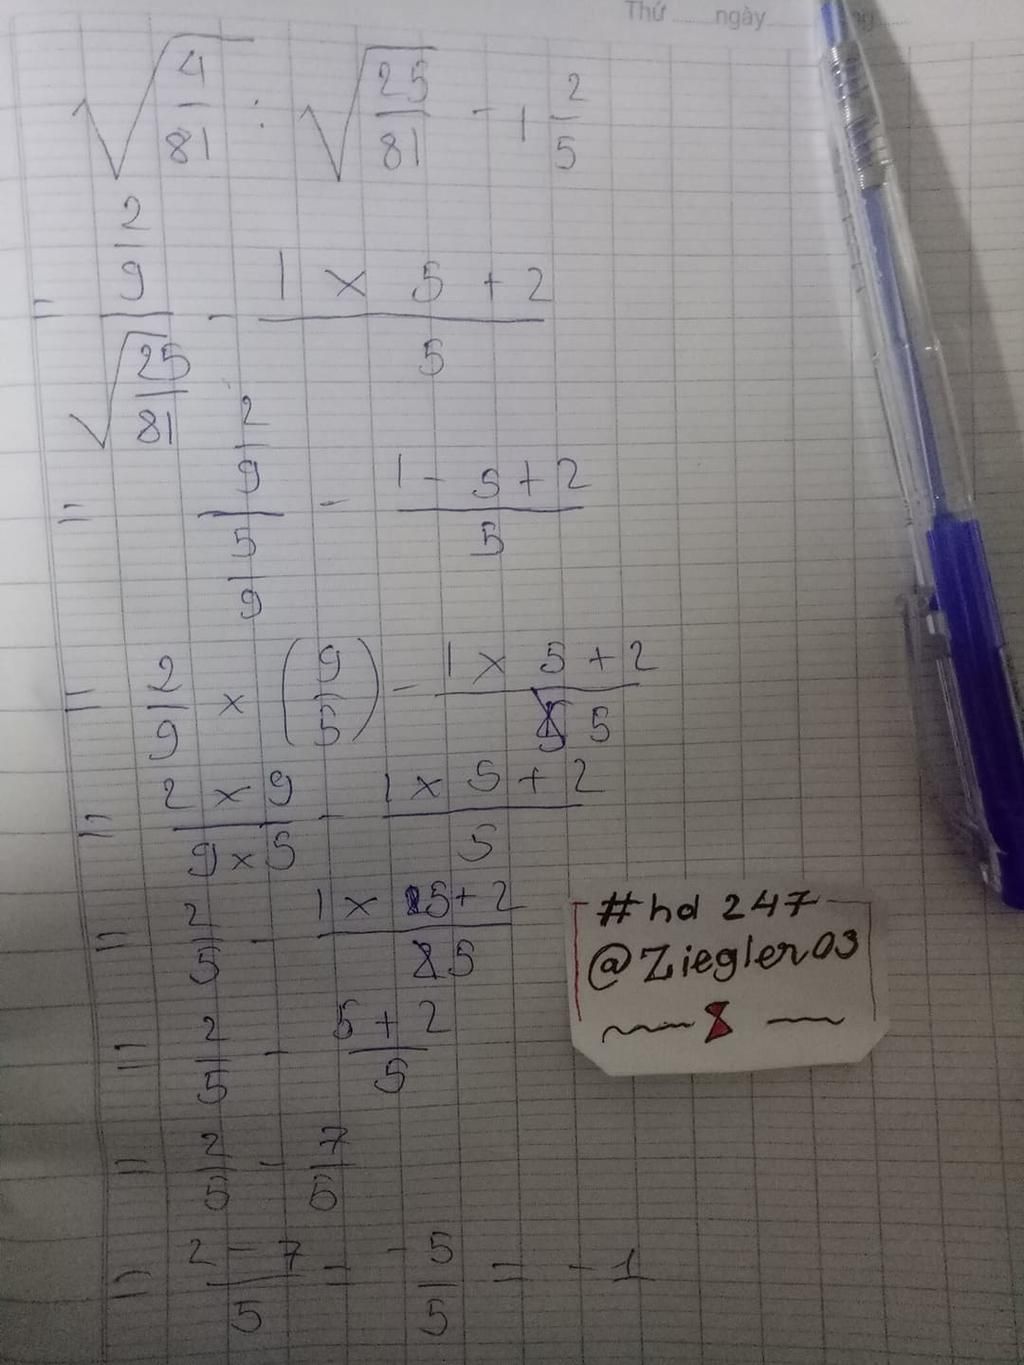 Thứ ...... ngày
√(4/81) : √(25/81) - 1 2/5
= (2/9)/√(25/81) - (1 × 5 + 2)/5
= (2/9)/(5/9) - (1 - 5 + 2)/5
= 2/9 × (9/5) - (1 × 5 + 2)/5
= (2 × 9)/(9 × 5) - (1 × 5 + 2)/5
= 2/5 - (1 × 5 + 2)/5
= 2/5 - (5 + 2)/5
= 2/5 - 7/5
= (2 - 7)/5 = -5/5 = -1
#hd 247
@Ziegler03